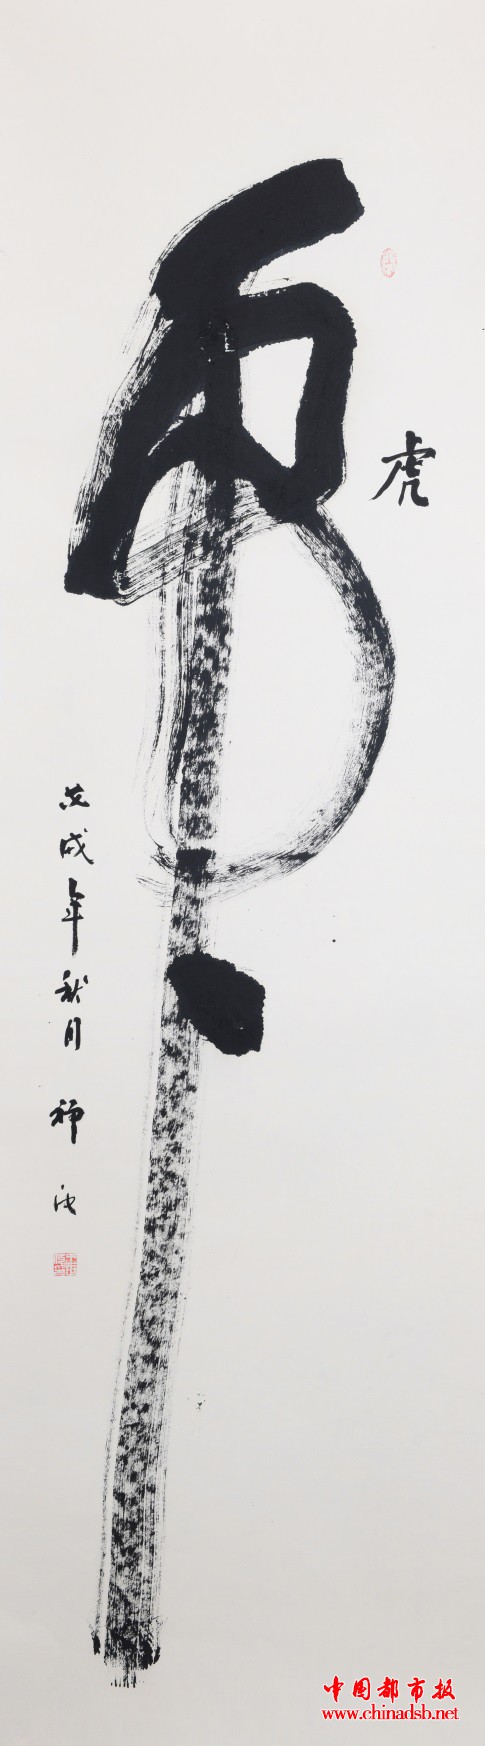 虎
虎
戊戌年秋月
中国都市报
www.chinadsb.net